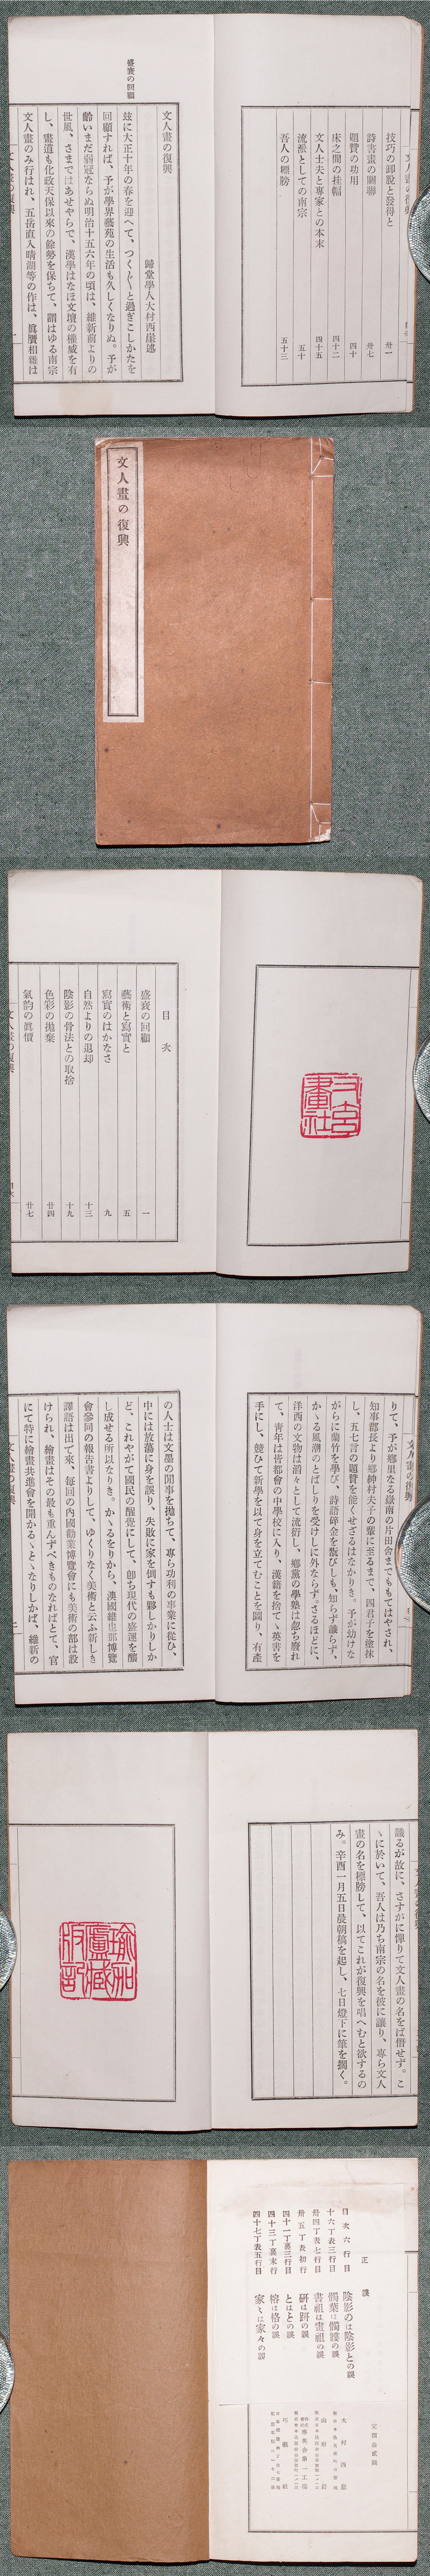 技巧の卸脫と發得と 卅一
詩書畫の關聯 卅七
題贊の功用 四十
床之間の挂幅 四十二
文人士夫と專家との本末 四十五
流派としての南宗 五十
吾人の標膀 五十三
盛衰の回顧
文人畫の復興
歸堂學人大村西崖述
玆に大正十年の春を迎へて、つく〲と過ぎこしかたを
回顧すれば、予が學界藝苑の生活も久しくなりぬ。予が
齡いまだ弱冠ならぬ明治十五六年の頃は、維新前よりの
世風、さまではあせやらで、漢學はなほ文壇の權威を有
し、畫道も化政天保以來の餘勢を保ちて、謂はゆる南宗
文人畫のみ行はれ、五岳直入晴湖等の作は、眞贋相雜は
文人畫の復興
目次
盛衰の回顧 一
藝術と寫實と 五
寫實のはかなさ 九
自然よりの退却 十三
陰影の骨法との取捨 十九
色彩の拋棄 廿四
氣韵の眞價 廿七
りて、予が鄕里なる嶽南の片田舍までももてはやされ、
知事郡長より鄕紳村夫子の輩に至るまで、四君子を塗抹
し、五七言の題贊を能くせざるはなかりき。予が幼けな
がらに蘭竹を學び、詩語碎金を翫びしも、知らず識らず、
かゝる風潮のとばしりを受けしに外ならず。さるほどに、
洋西の文物は滔々として流衍し、鄕黨の學塾は忽ち廢れ
て、靑年は皆都會の中學校に入り、漢籍を捨てゝ英書を
手にし、競ひて新學を以て身を立てむことを圖り、有產
の人士は文墨の閒事を拋ちて、專ら功利の事業に從ひ、
中には放蕩に身を誤り、失敗に家を倒すも夥しかりしか
ど、これやがて國民の醒覺にして、卽ち現代の盛運を釀
し成せる所以なりき。かゝるをりから、漢國維也那博覽
會參同の報吿書よりして、ゆくりなく美術と云ふ新しき
譯語は出で來、每回の內國勸業博覽會にも美術の部は設
けられ、繪畫はその最も重んずべきものなればとて、官
にて特に繪畫共進會を開かるゝとゝなりしかば、維新の
識るが故に、さすがに憚りて文人畫の名をば僭せず。こ
ゝに於いて、吾人は乃ち南宗の名を彼に讓り、專ら文人
畫の名を標膀して、以てこれが復興を唱へむと欲するの
み。辛酉一月五日晨朝稿を起し、七日燈下に筆を擱く。
正誤
目次六行目 陰影のは陰影との誤
十六丁表三行目
卅四丁表七行目 書祖は畫祖の誤
卅五丁表初行 硏は趼の誤
四十一丁裏三行目 とはとの誤
四十三丁裏末行 榕は格の誤
四十七丁表五行目 家〻は家々の誤
大村西崖